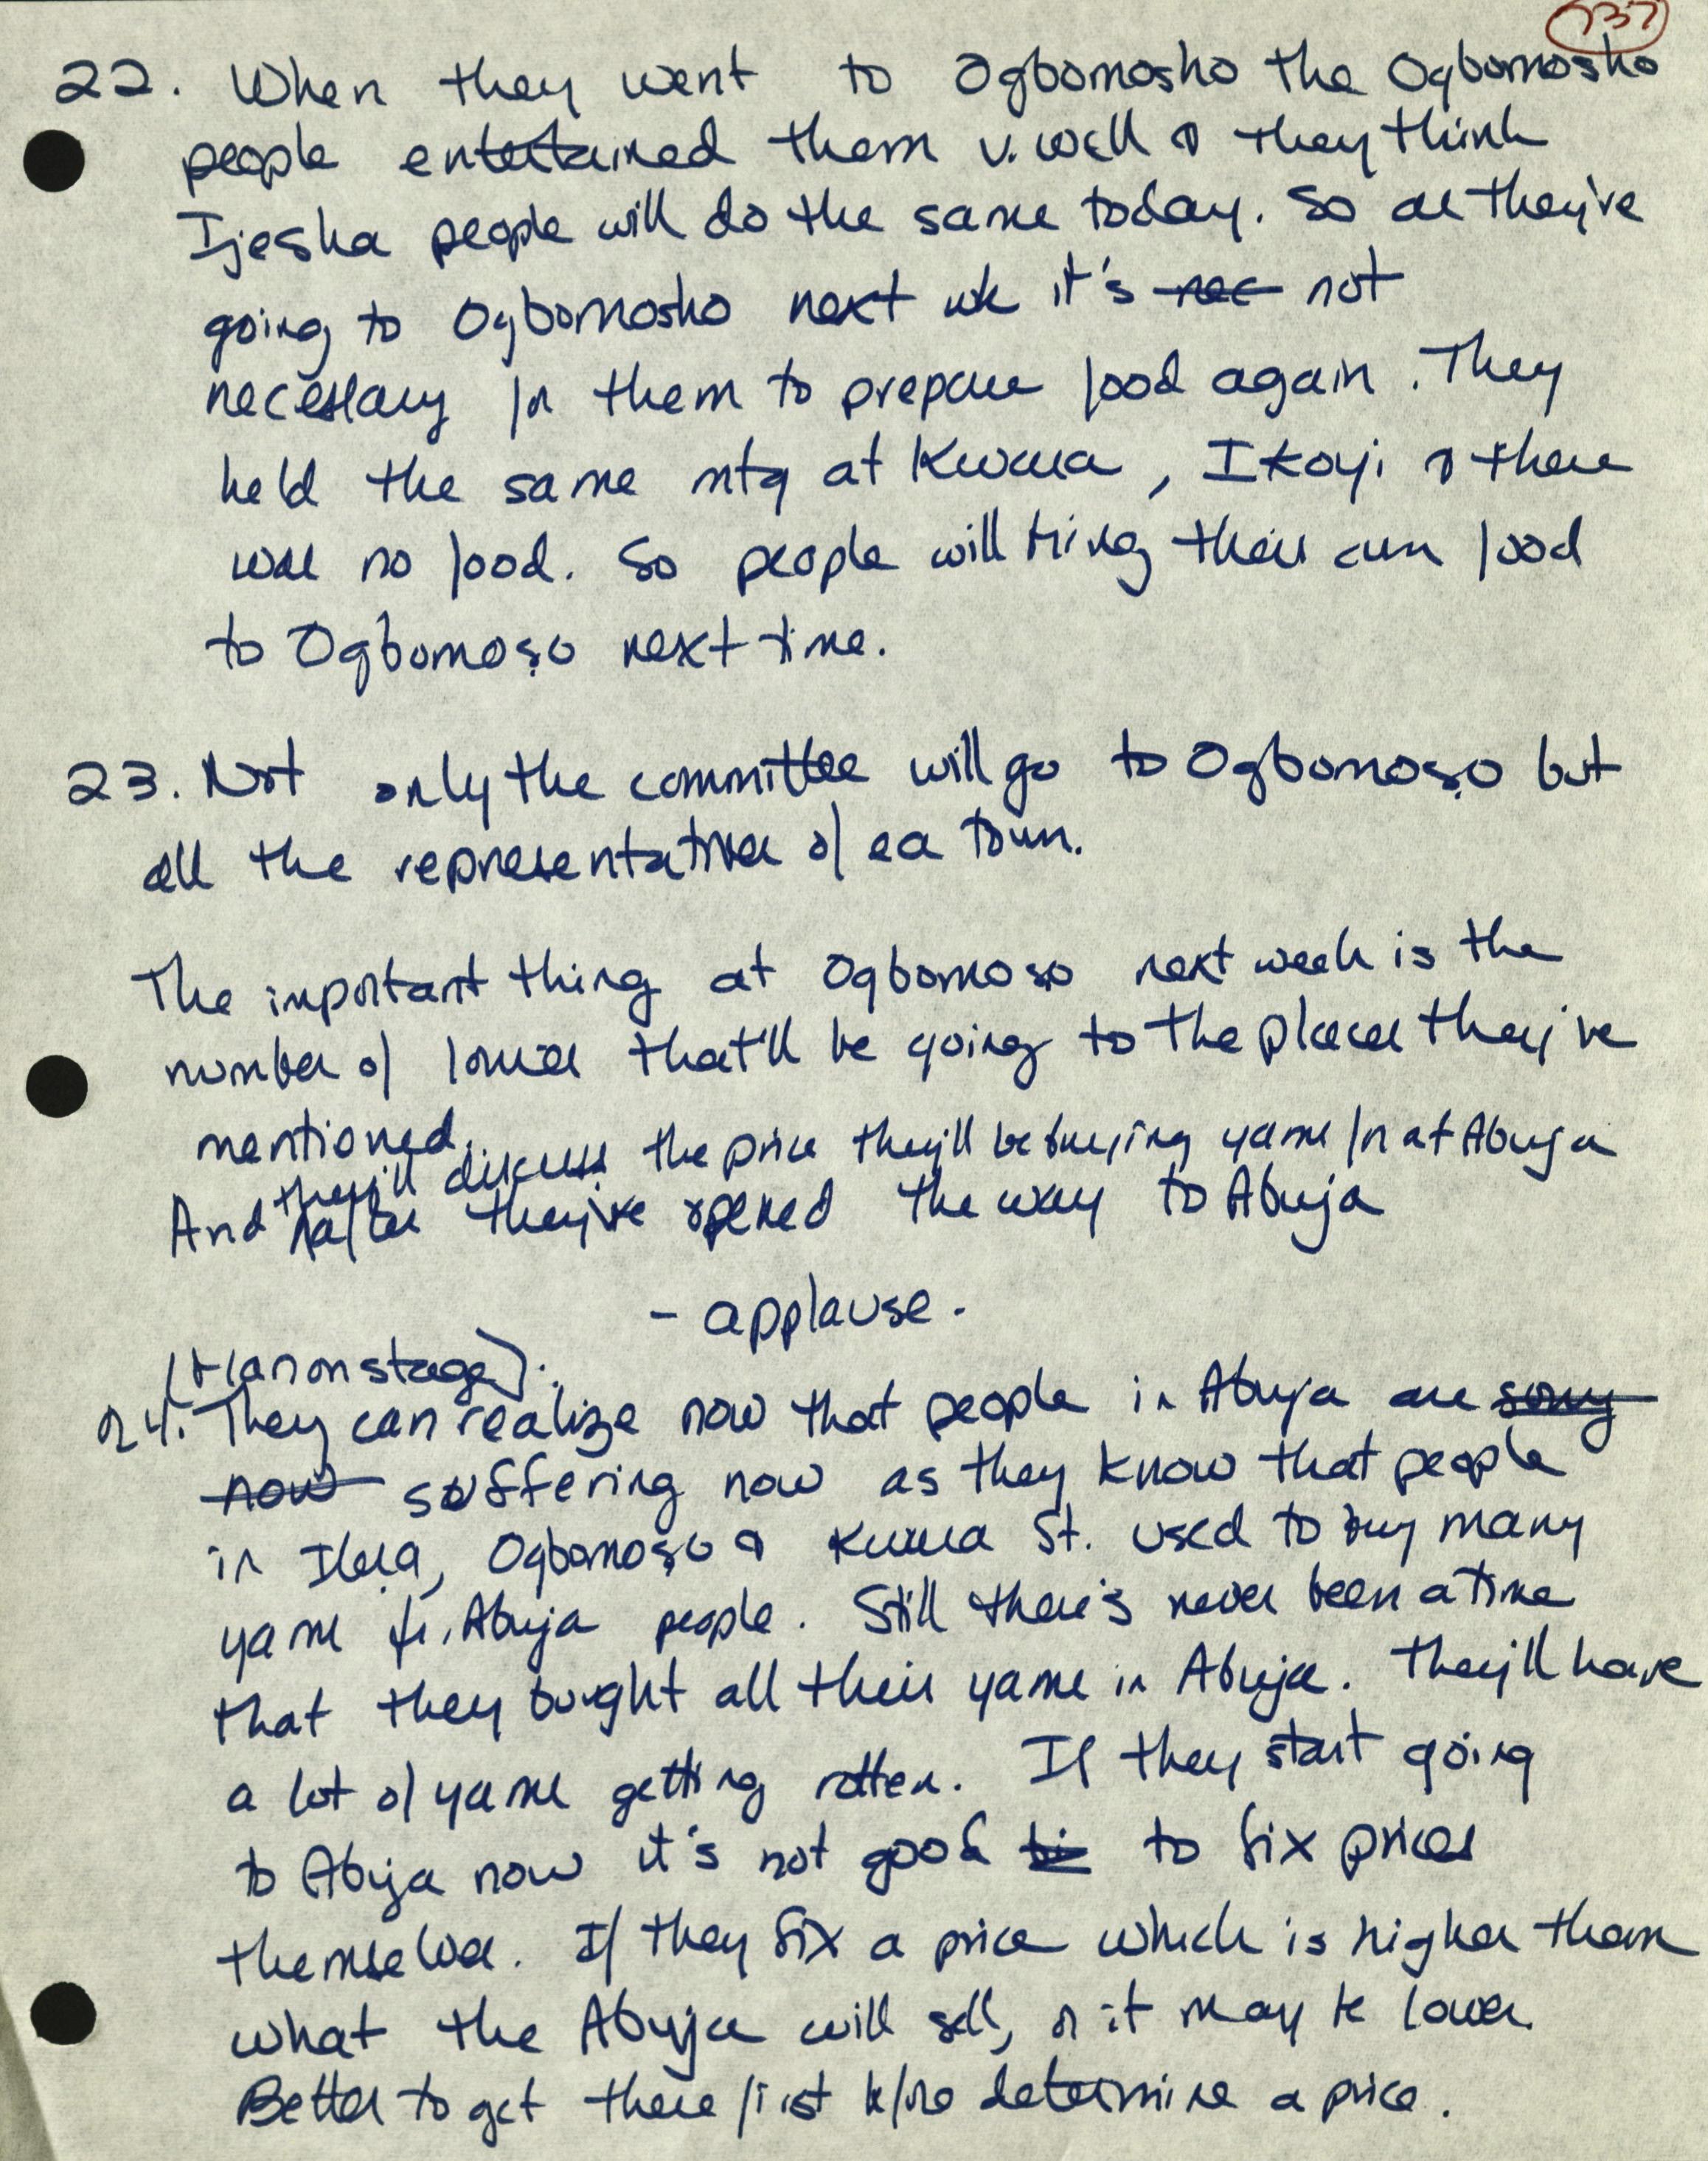 737
22. When they went to Ogbomosho the Ogbomosho
people entertained them v. well & they think
Ijesha people will do the same today. So as they've
going to Ogbomosho next wk it's nec not
necessary for them to prepare food again. They
held the same mtg at Kwara, Ikoyi & there
was no food. So people will bring their own food
to Ogbomoṣo next time.
23. Not only the committee will go to Ogbomoṣo but
all the representatives of ea town.
The important thing at Ogbomoṣo next week is the
number of lorries that'll be going to the places they've
mentioned.
they'll discuss the price they'll be buying yams for at Abuja
And after they've opened the way to Abuja
- applause -
(Man on stage).
24. They can realize now that people in Abuja are sorry
now suffering now as they know that people
in Ileṣa, Ogbomoṣo & Kwara St. used to buy many
yams fr. Abuja people. Still there's never been a time
that they bought all their yams in Abuja. They'll have
a lot of yams getting rotten. If they start going
to Abuja now it's not good to fix prices
themselves. If they fix a price which is higher than
what the Abuja will sell, or it may be lower.
Better to get there first b/fore determine a price.